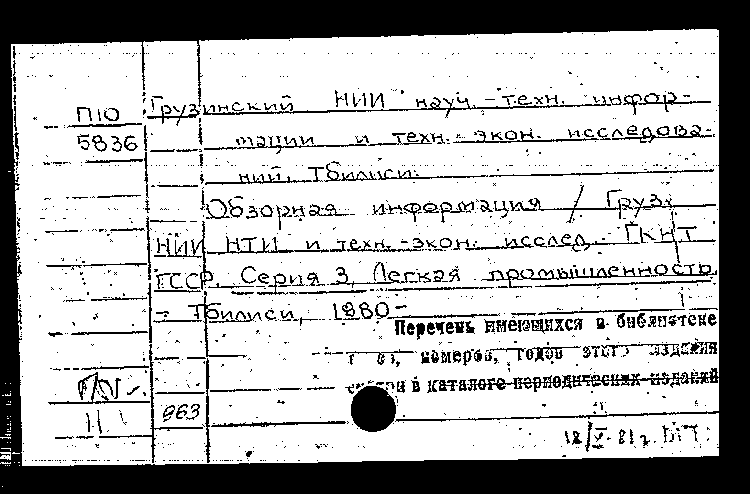 П10
5836
Грузинский НИИ науч.-техн. инфор-
мации и техн.-экон. исследова-
ний. Тбилиси.
Обзорная информация / Груз.
НИИ НТИ и техн.-экон. исслед. ГКНТ
ГССР. Серия 3, Легкая промышленность.
- Тбилиси, 1980-
Перечень имеющихся в библиотеке
номеров, годов этого издания
смотри в каталоге периодических изданий
963
18/V-81г.